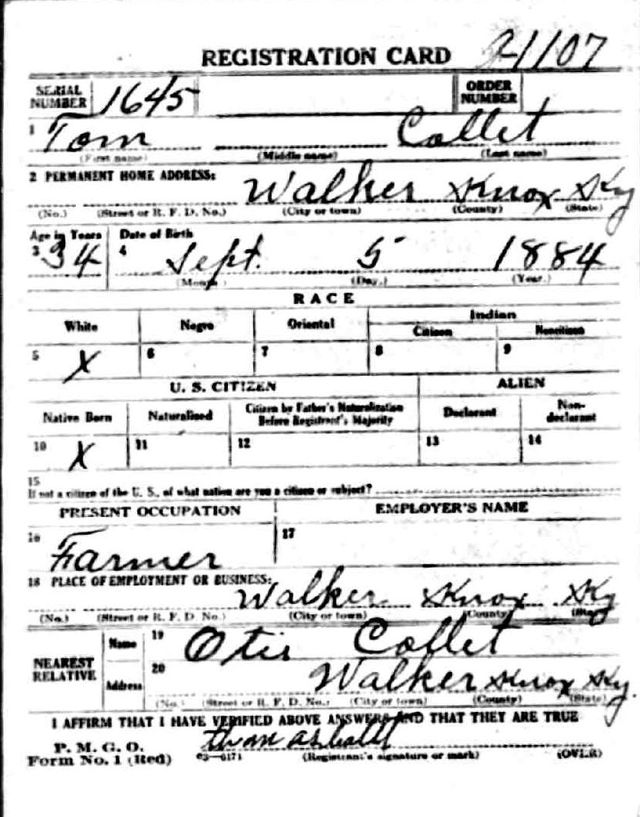 REGISTRATION CARD
SERIAL NUMBER 1645 ORDER NUMBER
1 Tom Collet
(First name) (Middle name) (Last name)
2 PERMANENT HOME ADDRESS: Walker Knox Ky
(No.) (Street or R. F. D. No.) (City or town) (County) (State)
Age in Years Date of Birth
3 34 4 Sept. 5 1884
(Month) (Day.) (Year.)
RACE
White Negro Oriental Indian
Citizen Noncitizen
5 X 6 7 8 9
U. S. CITIZEN ALIEN
Native Born Naturalized Citizen by Father's Naturalization Before Registrant's Majority Declarant Non-declarant
10 X 11 12 13 14
15
If not a citizen of the U. S., of what nation are you a citizen or subject?
PRESENT OCCUPATION EMPLOYER'S NAME
16 Farmer 17
18 PLACE OF EMPLOYMENT OR BUSINESS:
Walker Knox Ky
(No.) (Street or R. F. D. No.) (City or town) (County) (State)
NEAREST RELATIVE Name 19 Otis Collet
Address 20 Walker Knox Ky.
(No.) (Street or R. F. D. No.) (City or town) (County) (State)
I AFFIRM THAT I HAVE VERIFIED ABOVE ANSWERS AND THAT THEY ARE TRUE
P. M. G. O.
Form No. 1 (Red) 03—6171 (Registrant's signature or mark) (OVER)